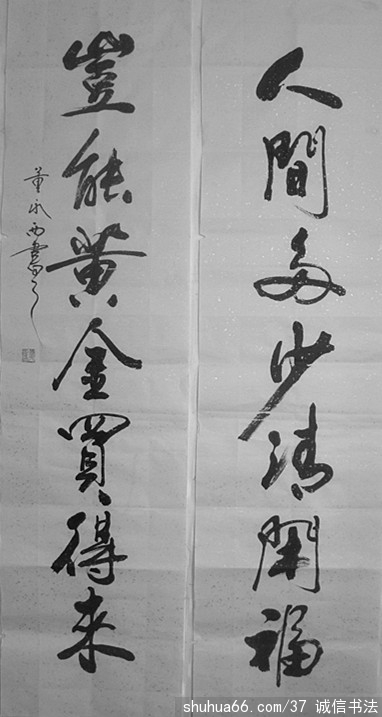 人間多少清閑福
豈能黃金買得來
董永西書之
shuhua66.com/37 诚信书法